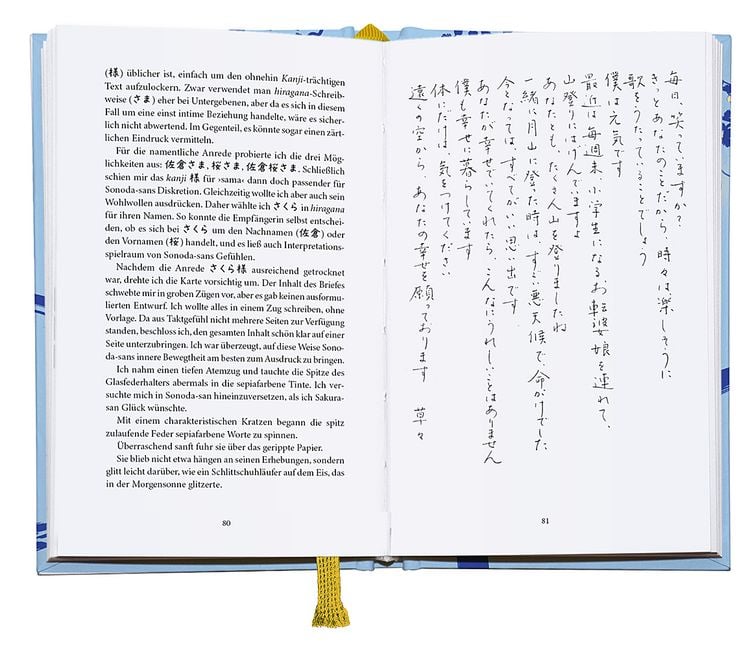 (様) üblicher ist, einfach um den ohnehin Kanji-trächtigen
Text aufzulockern. Zwar verwendet man hiragana-Schreib-
weise (さま) eher bei Untergebenen, aber da es sich in diesem
Fall um eine einst intime Beziehung handelte, wäre es sicher-
lich nicht abwertend. Im Gegenteil, es könnte sogar einen zärt-
lichen Eindruck vermitteln.
Für die namentliche Anrede probierte ich die drei Mög-
lichkeiten aus: 佐倉さま, 桜さま, 佐倉さま. Schließlich
schien mir das kanji 様 für ›sama‹ dann doch passender für
Sonoda-sans Diskretion. Gleichzeitig wollte ich aber auch sein
Wohlwollen ausdrücken. Daher wählte ich さくら in hiragana
für ihren Namen. So konnte die Empfängerin selbst entschei-
den, ob es sich bei さくら um den Nachnamen (佐倉) oder
den Vornamen (桜) handelt, und es ließ auch Interpretations-
spielraum von Sonoda-sans Gefühlen.
Nachdem die Anrede さくら様 ausreichend getrocknet
war, drehte ich die Karte vorsichtig um. Der Inhalt des Briefes
schwebte mir in groben Zügen vor, aber es gab keinen ausformu-
lierten Entwurf. Ich wollte alles in einem Zug schreiben, ohne
Vorlage. Da aus Taktgefühl nicht mehrere Seiten zur Verfügung
standen, beschloss ich, den gesamten Inhalt schön klar auf einer
Seite unterzubringen. Ich war überzeugt, auf diese Weise Sono-
da-sans innere Bewegtheit am besten zum Ausdruck zu bringen.
Ich nahm einen tiefen Atemzug und tauchte die Spitze des
Glasfederhalters abermals in die sepiafarbene Tinte. Ich ver-
suchte mich in Sonoda-san hineinzuversetzen, als ich Sakura-
san Glück wünschte.
Mit einem charakteristischen Kratzen begann die spitz
zulaufende Feder sepiafarbene Worte zu spinnen.
Überraschend sanft fuhr sie über das gerippte Papier.
Sie blieb nicht etwa hängen an seinen Erhebungen, sondern
glitt leicht darüber, wie ein Schlittschuhläufer auf dem Eis, das
in der Morgensonne glitzerte.
80
毎日、笑っていますか?
きっとあなたのことだから、時々は楽しそうに
歌をうたっていることでしょう
僕は元気です
最近は毎週末、小学生になるお転婆娘を連れて、
山登りにはげんでいますよ
あなたとも、たくさん山を登りましたね
一緒に月山に登った時は、すごい悪天候で、命がけでした
今となっては、すべてがいい思い出です
あなたが幸せでいてくれたら、こんなにうれしいことはありません
僕も幸せに暮らしています
体にだけは、気をつけてください
遠くの空から、あなたの幸せを願っております 草々
81